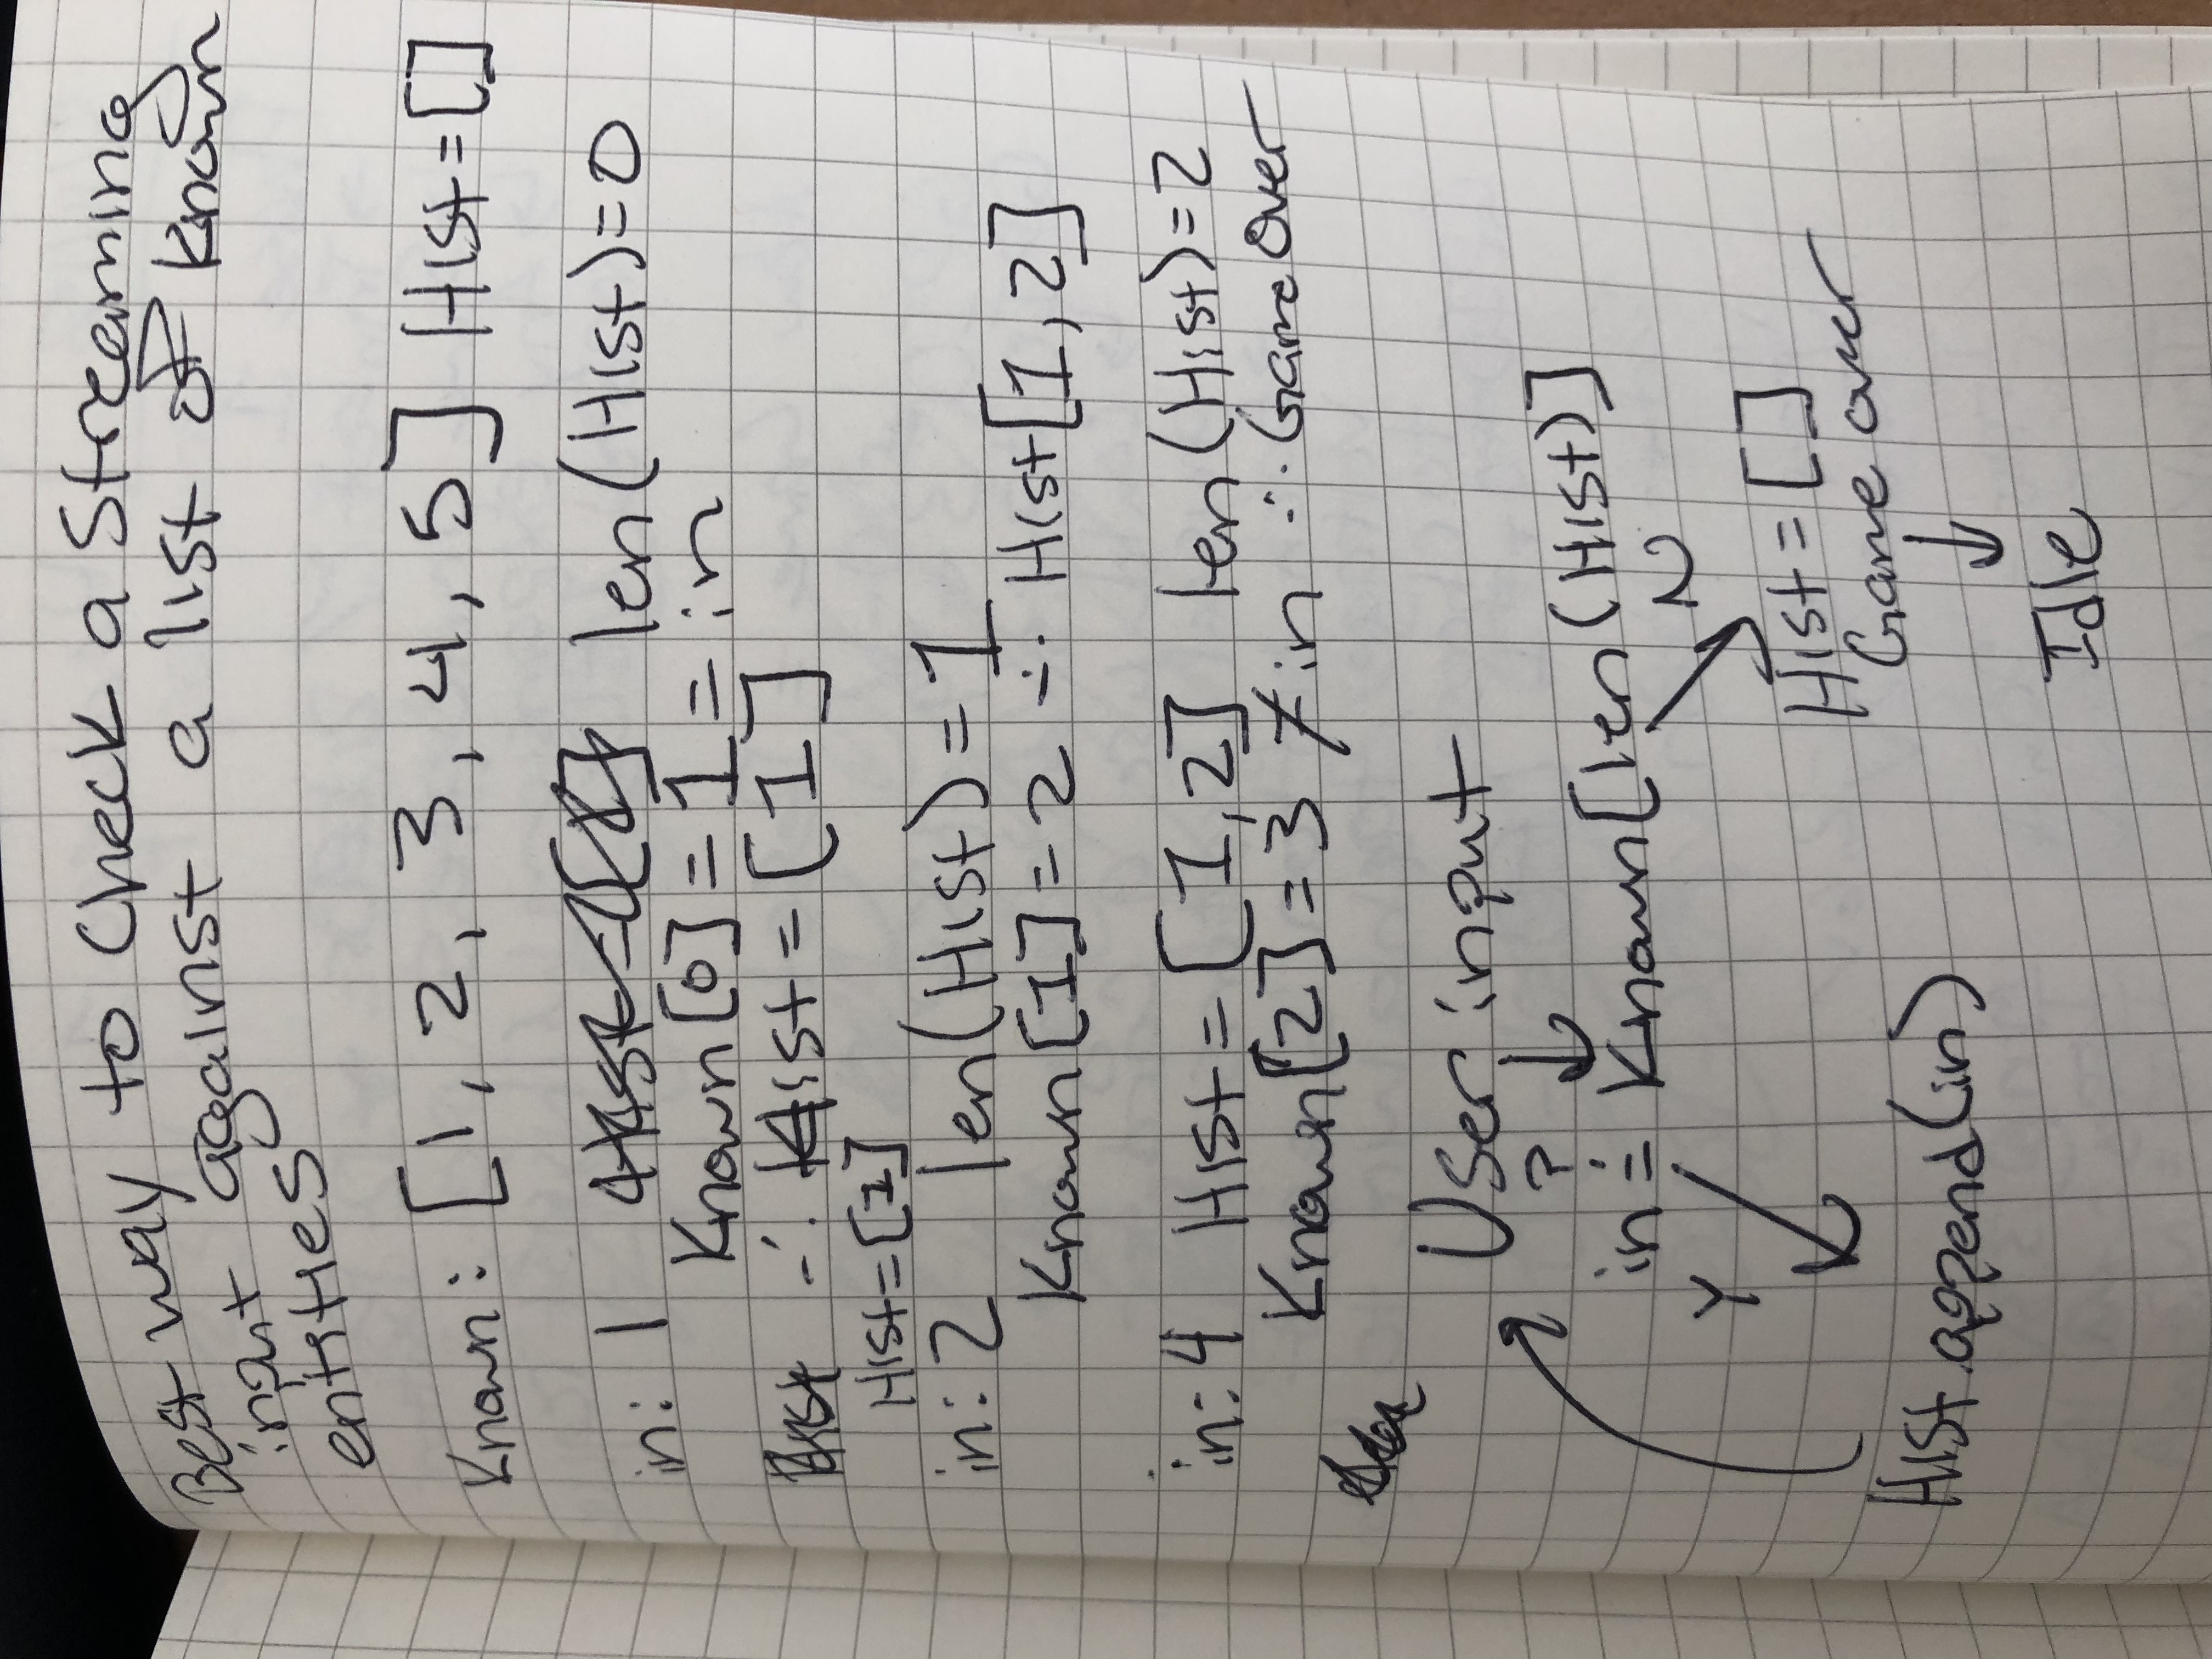 Best way to Check a Streaming
input against a list of known
entities
Known: [1, 2, 3, 4, 5] Hist=[]
in: 1 Hist=[1] len(Hist)=0
Known[0]=1=in
Hist ∴ Hist=[1]
Hist=[1]
in: 2 len(Hist)=1
Known[1]=2 ∴ Hist[1,2]
in: 4 Hist=[1,2] len(Hist)=2
Known[2]=3 ≠ in ∴ Game Over
User input
?
in = Known[len(Hist)]
Y N
Hist=[]
Game over
Hist.append(in)
Idle